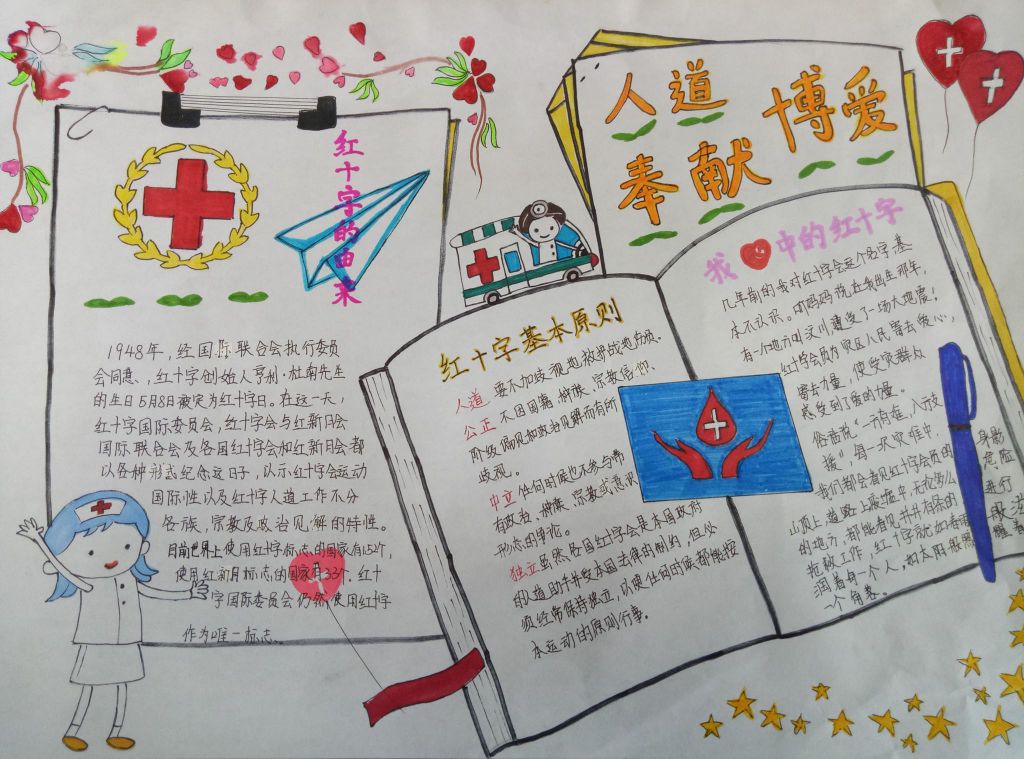 红十字的由来
1948年,经国际联合会执行委员
会同意、,红十字创始人亨利·杜南先生
的生日5月8日被定为红十字日。在这一天,
红十字国际委员会,红十字会与红新月会
国际联合会及各国红十字会和红新月会都
以各种形式纪念这日子,以示红十字会运动
国际性以及红十字人道工作不分
各族,宗教及政治见,解的特性。
目前世界上使用红十字标志的国家有152个,
使用红新月标志的国家有33个、红十
字国际委员会仍然使用红十字
作为唯一标志、
人道
博爱
奉献
红十字基本原则
人道 要不加歧视地救护战地伤员。
公正 不因国籍、种族、宗教信仰、
阶级偏见和政治见解而有所
歧视。
中立 任何时候也不参与带
有政治、种族、宗教或意识
形态的争论。
独立 虽然各国红十字会是本国政府
的人道助手并受本国法律的制约,但必
须经常保持独立,以便任何时候都能按
本运动的原则行事。
我 中的红十字
几年前的我对红十字会这个名字基
本不认识。听妈妈说在我出生那年,
有一个地方叫汶川遭受了一场大地震!
红十字会员为灾区人民寄去爱心,
寄去力量,使受灾群众
感受到了爱的力量。
俗话说“一方有难,八方支
援”,每一次灾难中,
我们都会看见红十字会员的身影
山顶上、道路上、废墟中,无论多么危险
的地方,都能看见
拖救工作,红十字就如
润着每一个人,如太阳
一个角落。